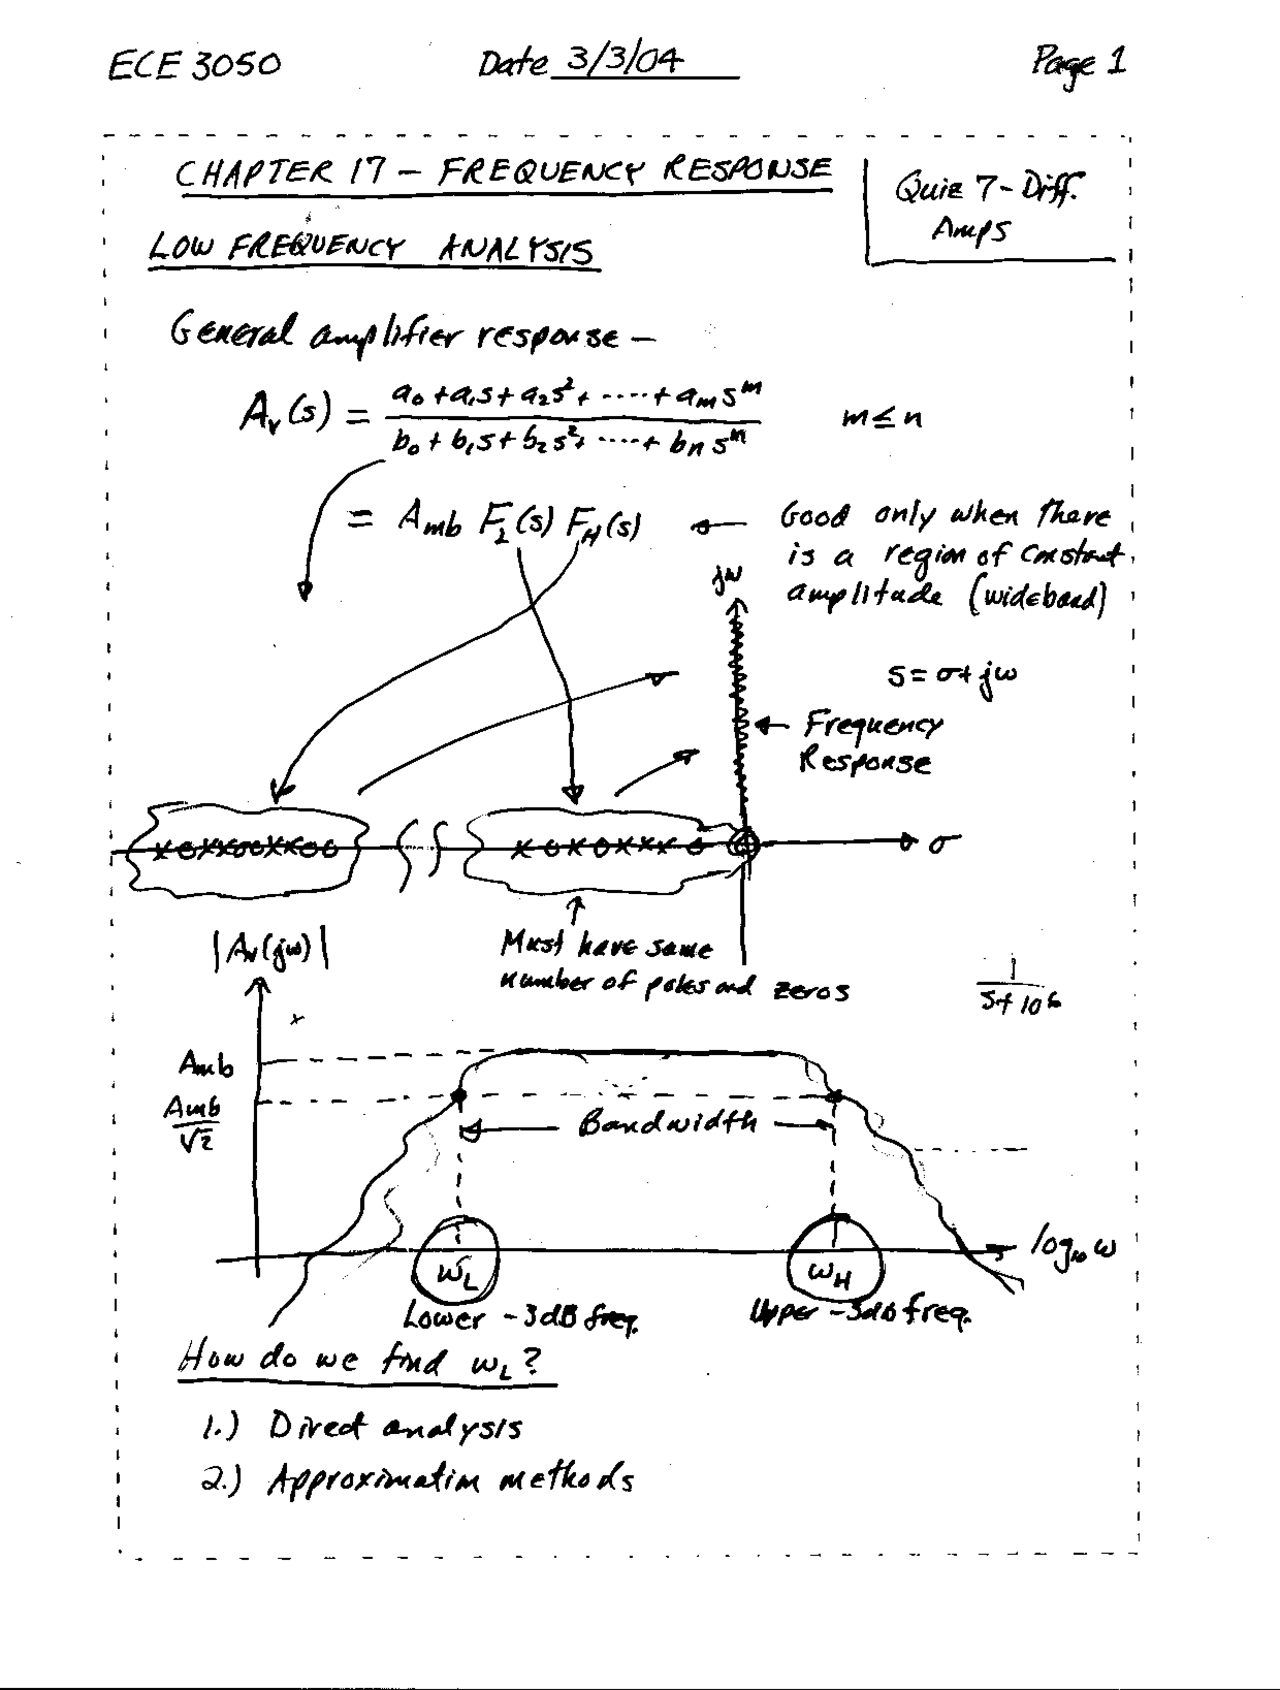 ECE 3050 Date 3/3/04 Page 1
CHAPTER 17 - FREQUENCY RESPONSE
Quiz 7 - Diff.
Amps
LOW FREQUENCY ANALYSIS
General amplifier response —
Av(s) = (a0 + a1s + a2s² + ..... + am s^m) / (b0 + b1s + b2s² + ..... + bn s^m) m ≤ n
= Amb FL(s) FH(s) ← Good only when there
is a region of constant
amplitude (wideband)
jω
s = σ + jω
← Frequency
Response
σ
Must have same
number of poles and zeros
|Av(jω)|
1 / (s + 10^6)
Amb
Amb / √2
Bandwidth
log10 ω
ωL
ωH
Lower -3dB freq.
Upper -3dB freq.
How do we find ωL?
1.) Direct analysis
2.) Approximation methods